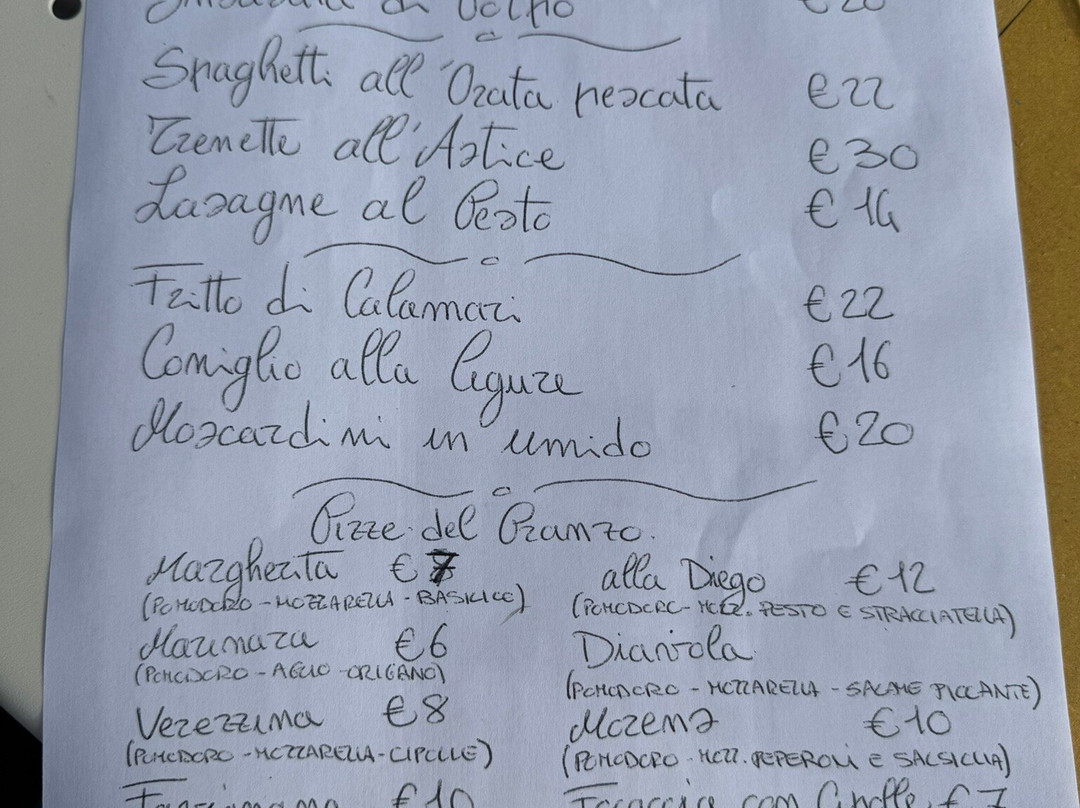 Insalata di Polpo €20
Spaghetti all'Orata pescata €22
Trenette all'Astice €30
Lasagne al Pesto €14
Fritto di Calamari €22
Coniglio alla ligure €16
Moscardini in umido €20
Pizze del Pranzo.
Margherita €7 alla Diego €12
(POMODORO - MOZZARELLA - BASILICO) (POMODORO - MOZZ. PESTO E STRACCIATELLA)
Marinara €6 Diavola
(POMODORO - AGLIO - ORIGANO) (POMODORO - MOZZARELLA - SALAME PICCANTE)
Verezzina €8 Morena €10
(POMODORO - MOZZARELLA - CIPOLLE) (POMODORO - MOZZ. PEPERONI E SALSICCIA)
€10 Focaccia con Cipolle €7